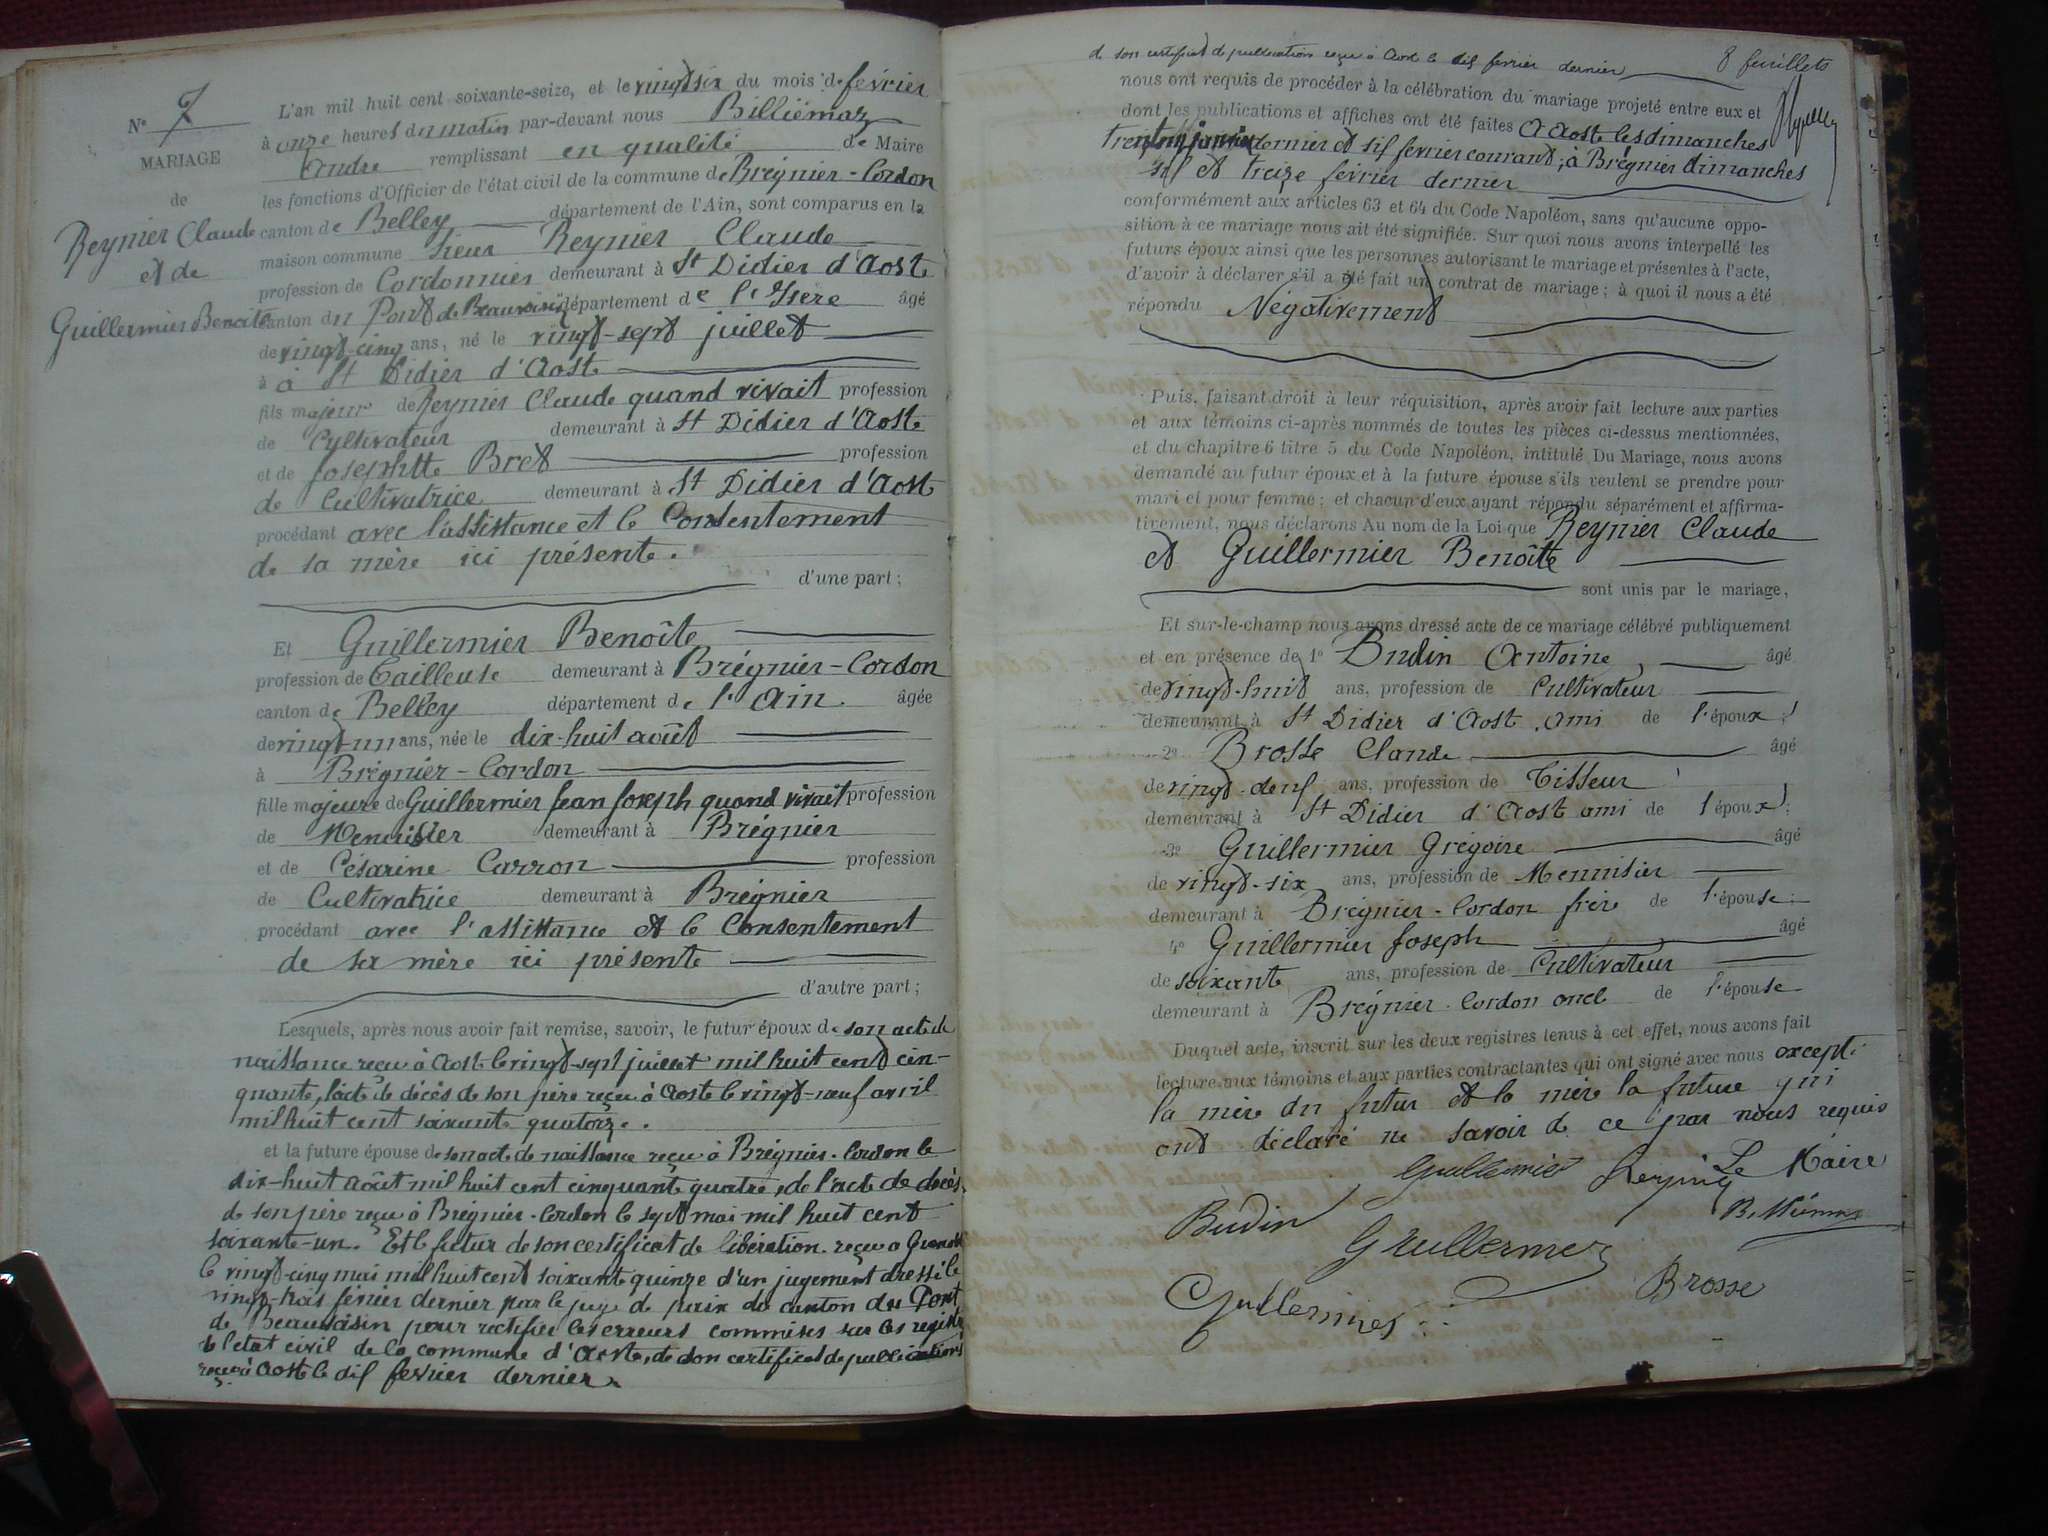 Nº 7
MARIAGE
de
Reynier Claude
et de
Guillermier Benoite
L'an mil huit cent soixante-seize, et le vingt six du mois de février
à onze heures du matin par-devant nous Billiémaz
André remplissant en qualité de Maire
les fonctions d'Officier de l'état civil de la commune de Brégnier-Cordon
canton de Belley département de l'Ain, sont comparus en la
maison commune sieur Reynier Claude
profession de Cordonnier demeurant à St Didier d'Aoste
canton du Pont de Beauvoisin département de l'Isère âgé
de vingt-cinq ans, né le vingt-sept juillet
à à St Didier d'Aoste
fils majeur de Reynier Claude quand vivait profession
de Cultivateur demeurant à St Didier d'Aoste
et de Josephtte Bret profession
de Cultivatrice demeurant à St Didier d'Aost
procédant avec l'assistance et le Consentement
de sa mère ici présente.
d'une part;
Et Guillermier Benoîte
profession de Tailleuse demeurant à Brégnier-Cordon
canton de Belley département de l'Ain âgée
de vingt-un ans, née le dix-huit août
à Brégnier-Cordon
fille majeure de Guillermier Jean Joseph quand vivait profession
de Menuisier demeurant à Brégnier
et de Césarine Carron profession
de Cultivatrice demeurant à Brégnier
procédant avec l'assistance et le Consentement
de sa mère ici présente
d'autre part;
Lesquels, après nous avoir fait remise, savoir, le futur époux de son acte de
naissance reçu à Aost le vingt-sept juillet mil huit cent cin-
quante, l'acte de décès de son père reçu à Aoste le vingt-neuf avril
mil huit cent soixante quatorze.
et la future épouse de son acte de naissance reçu à Brégnier-Cordon le
dix-huit Août mil huit cent cinquante quatre, de l'acte de décès
de son père reçu à Brégnier-Cordon le sept mai mil huit cent
soixante-un. Et le futur de son certificat de libération reçu à Grenoble
le vingt-cinq mai mil huit cent soixante quinze d'un jugement dressé le
vingt-trois février dernier par le juge de paix du canton du Pont
de Beauvoisin pour rectifier les erreurs commises sur les registres
de l'état civil de la commune d'Aoste, de son certificat de publication
reçu à Aoste le dix février dernier.
8 feuillets
et son certificat de publication reçu à Aost le dix fevrier dernier
nous ont requis de procéder à la célébration du mariage projeté entre eux et
dont les publications et affiches ont été faites à Aoste les dimanches
trente janvier dernier et six fevrier courant; à Brégnier dimanches
six et treize février dernier
conformément aux articles 63 et 64 du Code Napoléon, sans qu'aucune oppo-
sition à ce mariage nous ait été signifiée. Sur quoi nous avons interpellé les
futurs époux ainsi que les personnes autorisant le mariage et présentes à l'acte,
d'avoir à déclarer s'il a été fait un contrat de mariage; à quoi il nous a été
répondu Négativement
Puis, faisant droit à leur réquisition, après avoir fait lecture aux parties
et aux témoins ci-après nommés de toutes les pièces ci-dessus mentionnées,
et du chapitre 6 titre 5 du Code Napoléon, intitulé Du Mariage, nous avons
demandé au futur époux et à la future épouse s'ils veulent se prendre pour
mari et pour femme; et chacun d'eux ayant répondu séparément et affirma-
tivement, nous déclarons Au nom de la Loi que Reynier Claude
et Guillermier Benoîte
sont unis par le mariage,
Et sur-le-champ nous avons dressé acte de ce mariage célébré publiquement
et en présence de 1º Budin Antoine, âgé
de vingt-huit ans, profession de Cultivateur
demeurant à St Didier d'Aost ami de l'époux;
2º Brosse Claude âgé
de vingt-neuf ans, profession de Tisseur
demeurant à St Didier d'Aost ami de l'époux;
3º Guillermier Grégoire âgé
de vingt-six ans, profession de Menuisier
demeurant à Brégnier-Cordon frère de l'épouse;
4º Guillermier Joseph âgé
de soixante ans, profession de Cultivateur
demeurant à Brégnier-Cordon oncl de l'épouse
Duquel acte, inscrit sur les deux registres tenus à cet effet, nous avons fait
lecture aux témoins et aux parties contractantes qui ont signé avec nous excepté
la mère du futur et la mère la future qui
ont déclaré ne savoir de ce par nous requis
Guillermier Reynier Le Maire
Budin Guillermier Billiémaz
Guillermier Brosse